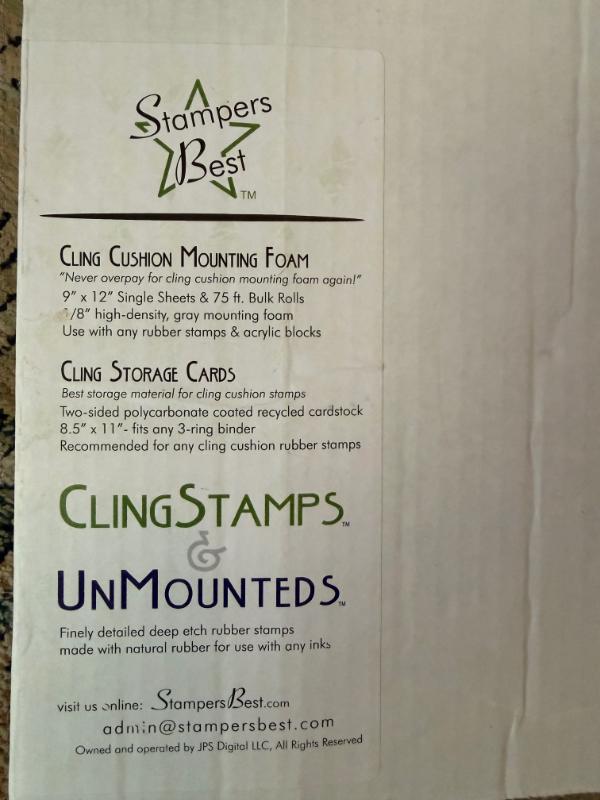 Stampers
Best
TM
CLING CUSHION MOUNTING FOAM
"Never overpay for cling cushion mounting foam again!"
9" x 12" Single Sheets & 75 ft. Bulk Rolls
1/8" high-density, gray mounting foam
Use with any rubber stamps & acrylic blocks
CLING STORAGE CARDS
Best storage material for cling cushion stamps
Two-sided polycarbonate coated recycled cardstock
8.5" x 11"- fits any 3-ring binder
Recommended for any cling cushion rubber stamps
CLINGSTAMPS™
&
UNMOUNTEDS™
Finely detailed deep etch rubber stamps
made with natural rubber for use with any inks
visit us online: StampersBest.com
admin@stampersbest.com
Owned and operated by JPS Digital LLC, All Rights Reserved